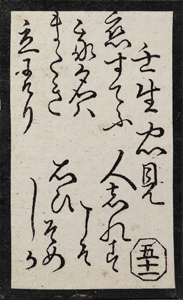 壬生忠見
恋すてふ
我名は
またき
立にけり
人しれす
こそ
思ひそめ
しか
五十一